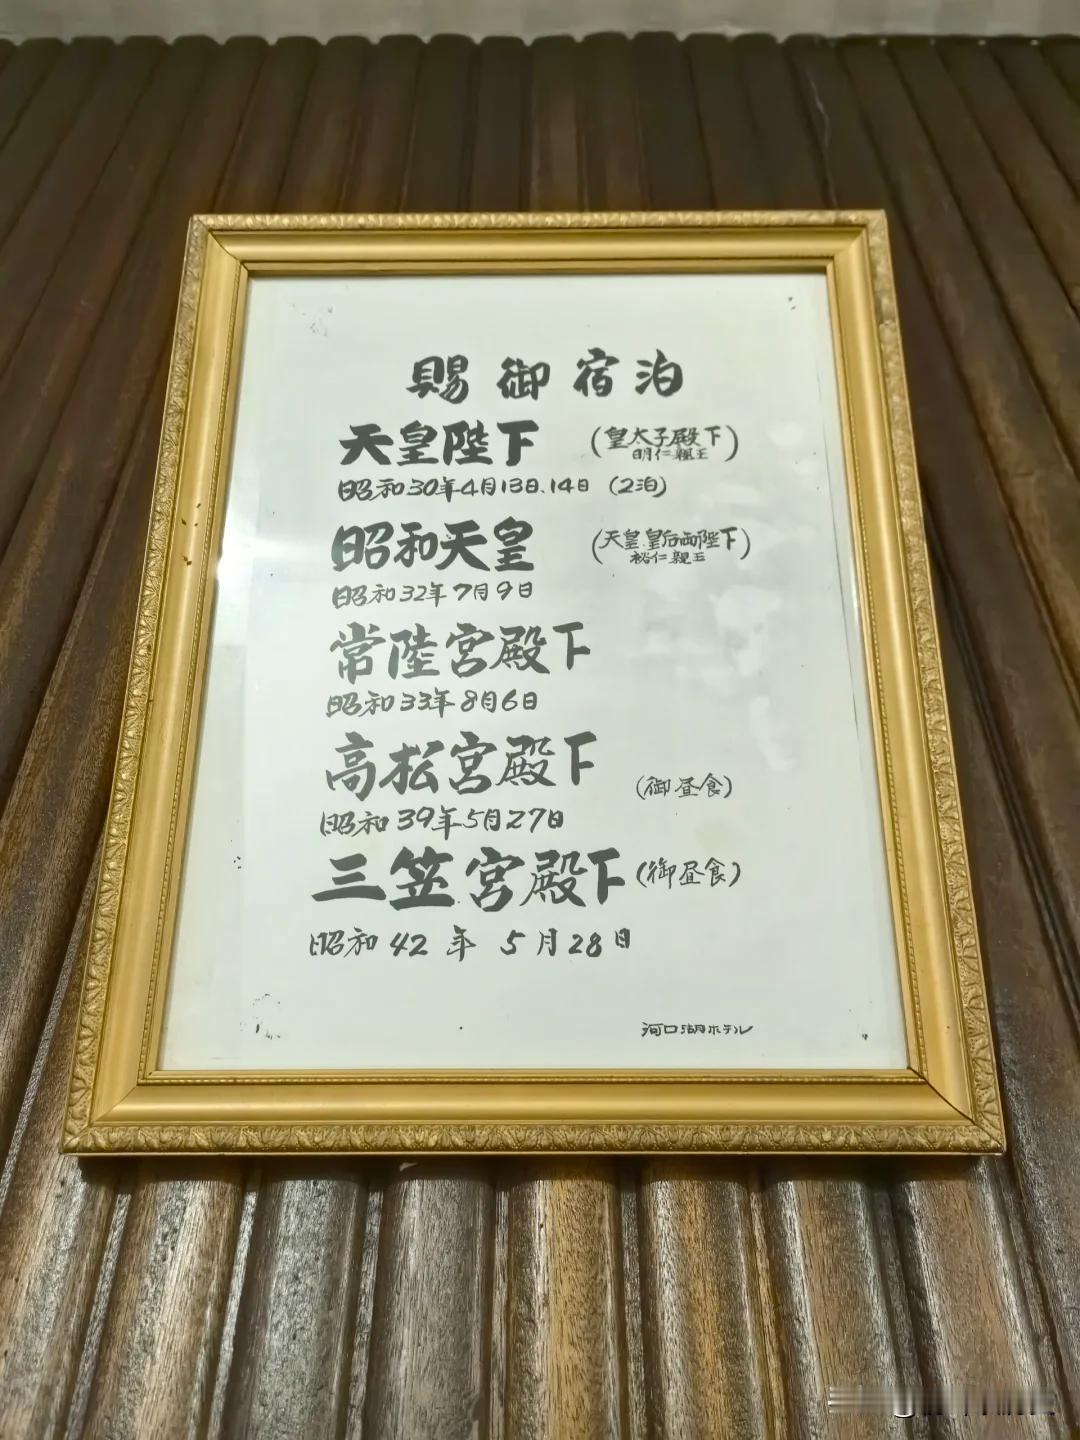 賜御宿泊
天皇陛下 (皇太子殿下)
明仁親王
昭和30年4月13日.14日 (2泊)
昭和天皇 (天皇.皇后両陛下)
裕仁親王
昭和32年7月9日
常陸宮殿下
昭和33年8月6日
高松宮殿下 (御昼食)
昭和39年5月27日
三笠宮殿下 (御昼食)
昭和42年5月28日
河口湖ホテル